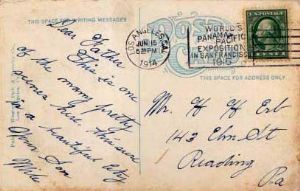 THIS SPACE FOR WRITING MESSAGES
Dear Father
This is one
of the many pretty
scenes here. Pleasure
in a beautiful city
Your Son
LOS ANGELES, CAL.
JUN 15
6 PM
1914
WORLD'S
PANAMA-PACIFIC
EXPOSITION
IN SAN FRANCISCO
1915
THIS SPACE FOR ADDRESS ONLY
Mr H H Erb
143 Elm St
Reading
Pa